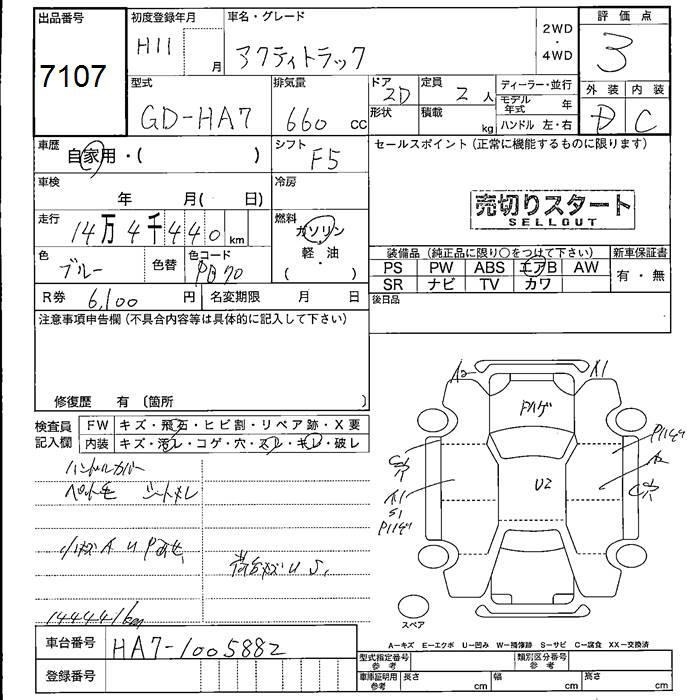 出品番号 初度登録年月 車名・グレード 2WD・4WD 評価点
7107 H11 月 アクティトラック 3
型式 排気量 ドア 定員 ディーラー・並行 外装 内装
GD-HA7 660 cc 2D 2人 モデル年式 年 D C
形状 積載 kg ハンドル 左・右
車歴 自家用・( ) シフト F5 セールスポイント (正常に機能するものに限ります)
車検 年 月( 日) 冷房
売切りスタート
SELLOUT
走行 14万4千440km 燃料 ガソリン
軽・油
( )
色 ブルー 色替 色コード PB70
装備品 (純正品に限り○をつけて下さい) 新車保証書
PS PW ABS エアB AW 有・無
SR ナビ TV カワ
R券 6,100円 名変期限 月 日 後日品
注意事項申告欄 (不具合内容等は具体的に記入して下さい)
修復歴 有 〔箇所 〕
検査員記入欄 FW キズ・飛石・ヒビ割・リペア跡・X要
内装 キズ・汚レ・コゲ・穴・スレ・キレ・破レ
ハンドルカバー
A2 A1
Pハゲ
Pハゲ
A2
C穴
U2
C穴
A1
S1
Pハゲ
144441km
スペア
A=キズ E=エクボ U=凹み W=補修跡 S=サビ C=腐食 XX=交換済
車台番号 HA7-1005882
型式指定番号参考 類別区分番号参考
登録番号
車庫証明用参考 長さ cm 幅 cm 高さ cm